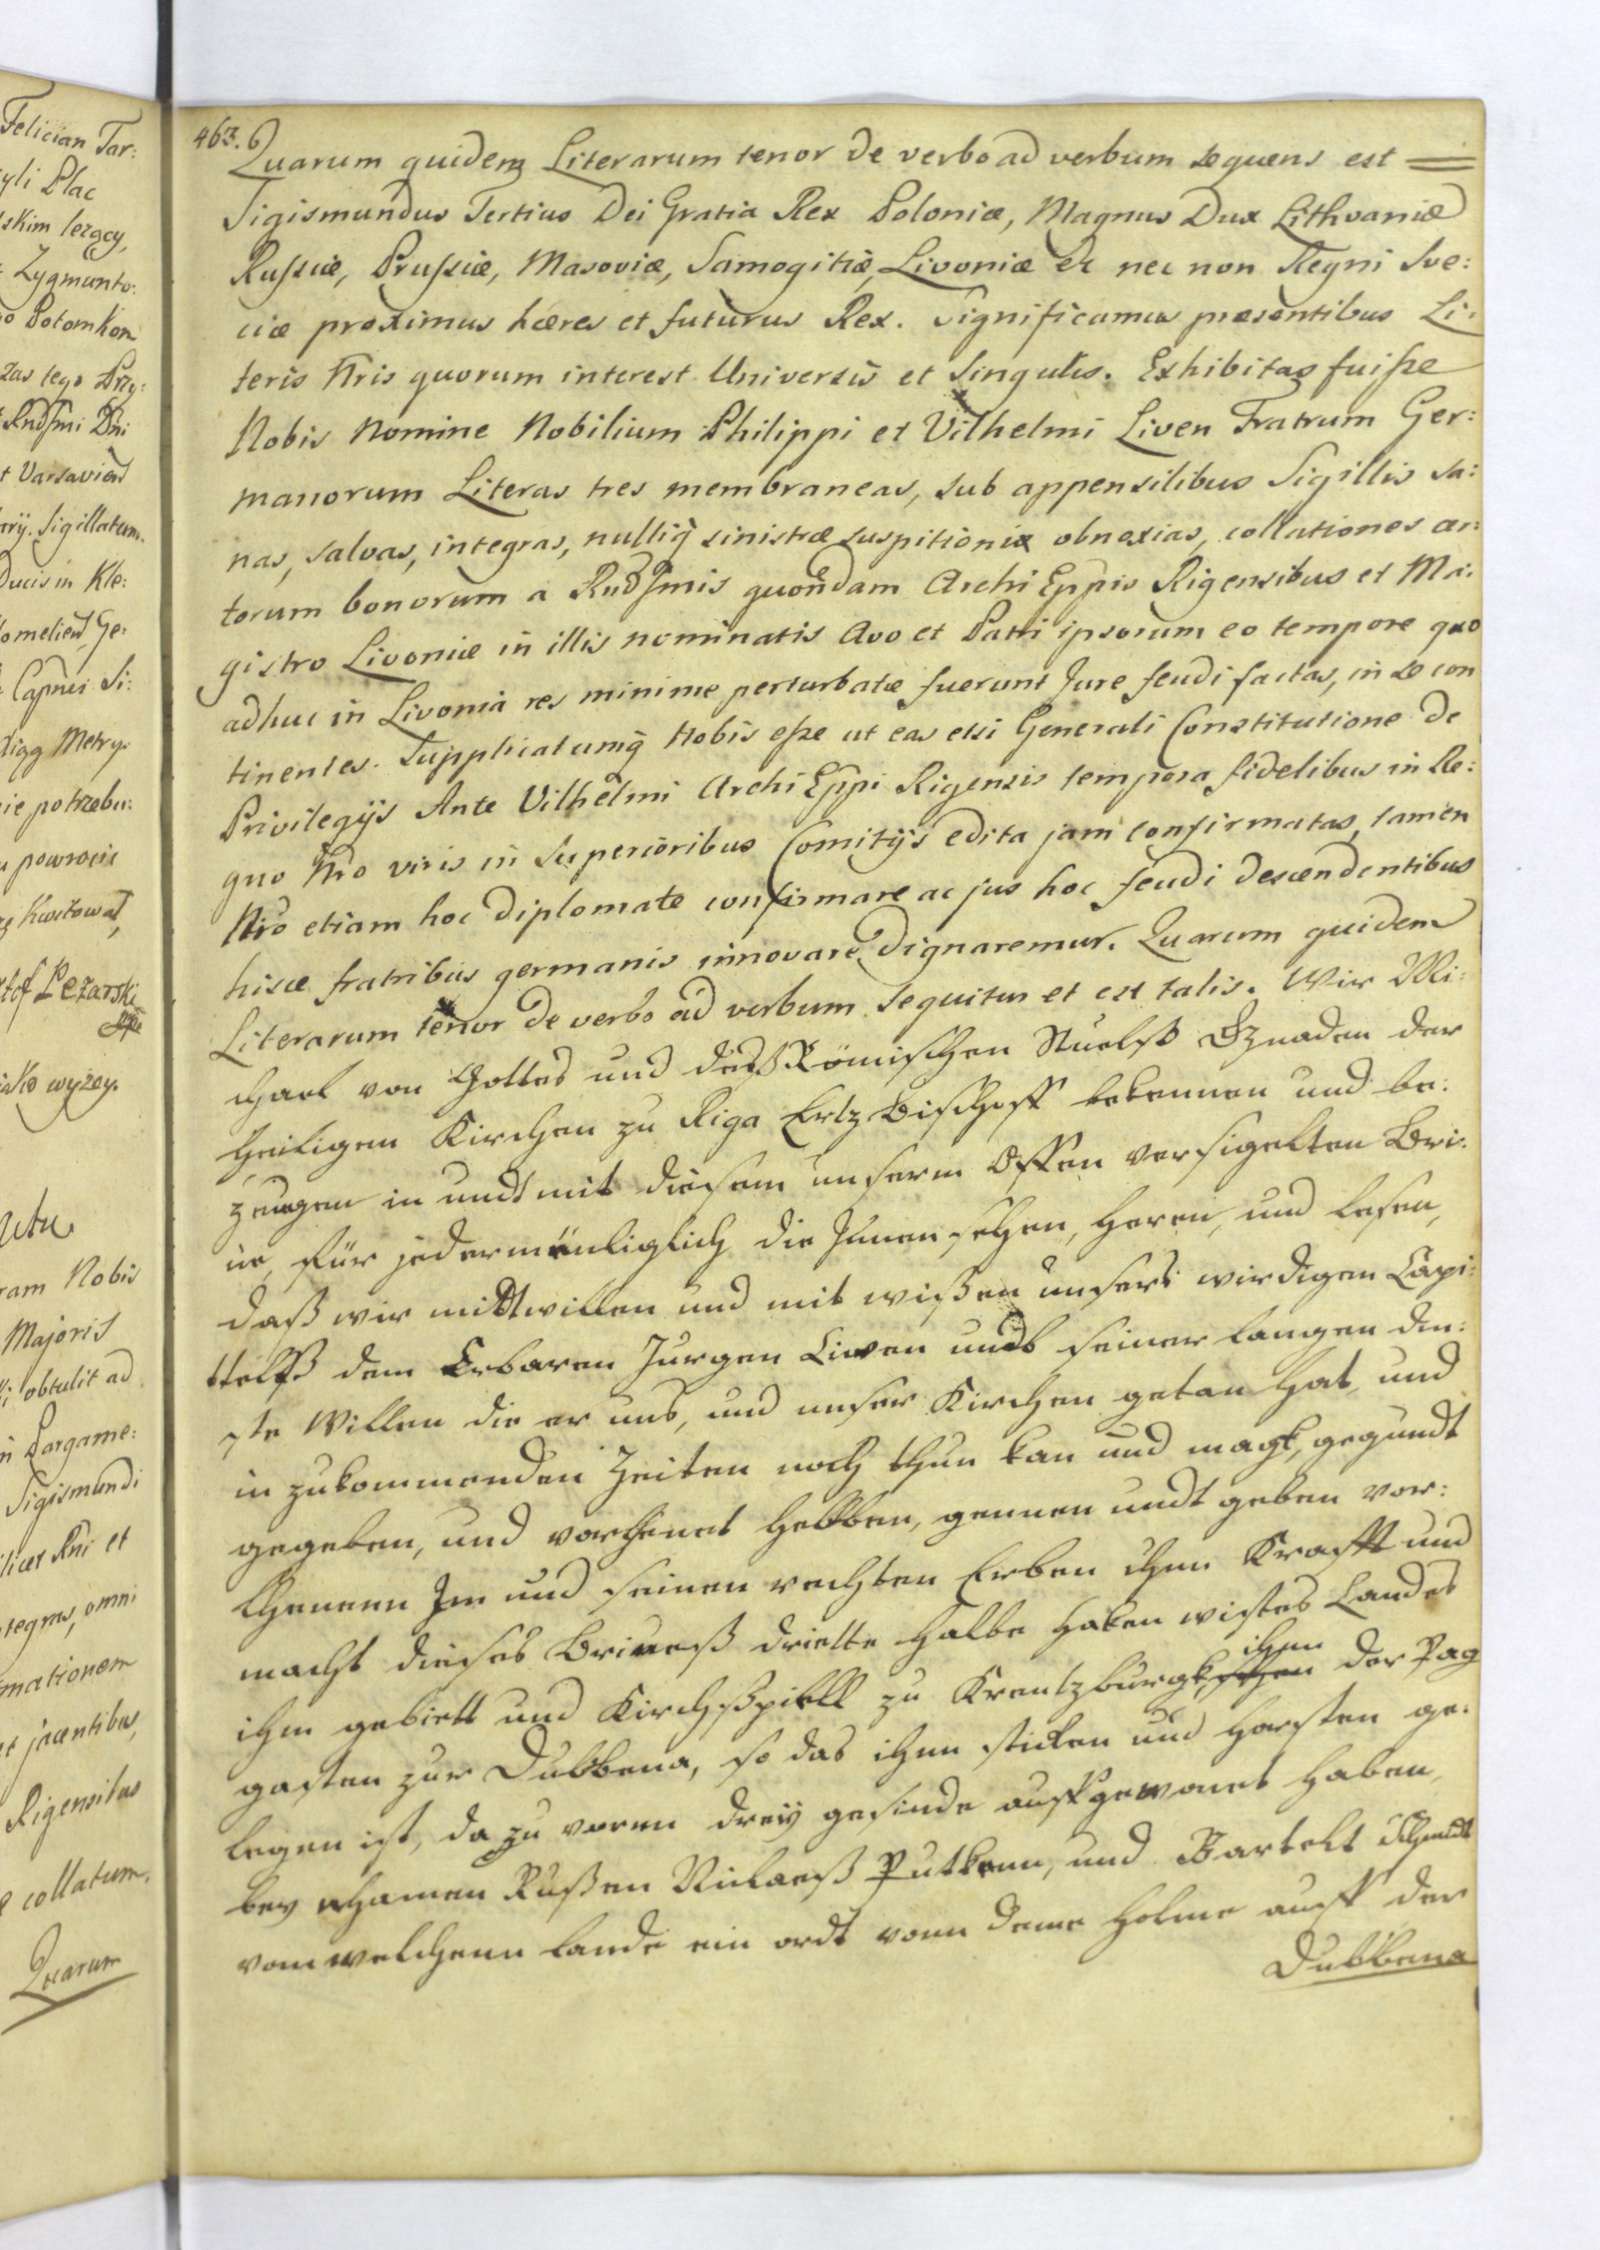 Felician Tar:
yli Plac
skim lezący,
Zygmunto:
o Potomkom
zas tego Przy:
Rndſmi Dni
t Varsavien
rij. Sigillatum.
Ducis in Kle:
omelien, Ge:
Capnei Si:
Metry.
ie potrzebu:
powrocie
Kwitował,
Lezarski
wyżey.
Actu
ram Nobis
Majoris
obtulit ad
in Pargame:
Sigismundi
licet Rni et
tegras, omni
mationem
et jacentibus,
Rigensibus
collatum.
Quarum
463.
Quarum quidem Literarum tenor de verbo ad verbum sequens est =
Sigismundus Tertius Dei Gratia Rex Poloniæ, Magnus Dux Lithvaniæ
Ruſsiæ, Pruſsiæ, Masoviæ, Samogitiæ, Livoniæ &c nec non Regni Sve:
ciæ proximus hæres et futurus Rex. Significamus præsentibus Li:
teris Nris quorum interest Universis et Singulis. Exhibitas fuiſse
Nobis Nomine Nobilium Philippi et Vilhelmi Liven Fratrum Ger:
manorum Literas tres membraneas, sub appensilibus Sigillis sa:
nas, salvas, integras, nulliq̃ sinistræ suspitionis obnoxias, collationes cer:
torum bonorum a Rndſmis quondam Archi Eppis Rigensibus et Ma:
gistro Livoniæ in illis nominatis Avo et Patri ipsorum eo tempore quo
adhuc in Livonia res minime perturbatæ fuerunt Jure feudi factas, in se con
tinentes. Supplicatumq̃ Nobis eſse ut eas etsi Generali Constitutione de
Privilegijs Ante Vilhelmi Archi Eppi Rigensis tempora fidelibus in Re:
gno Nro viris in Superioribus Comitijs edita jam confirmatas, tamen
Nro etiam hoc diplomate confirmare ac jus hoc feudi descendentibus
hisce fratribus germanis innovare dignaremur. Quarum quidem
Literarum tenor de verbo ad verbum sequitur et est talis. Wir Mi:
chael von Gottes und deß Römischen Stuelß Gznaden der
Heiligem Kirchen zu Riga Ertz Bischoff bekennen und be:
zeugen in undt mit diesem unserm Offen versigelten Bri:
ue, für jedermänliglich die Jhnen sehen, horen, und lesen,
daß wir mitt willen und mit wißen unsers wirdigen Capi:
ttelß dem Erbaren Jurgen Liven umb seiner langen din:
ste Willen die er uns, und unser Kirchen getan hat, und
in zukommenden Zeiten noch thun kan und magk, gegundt
gegeben, und vorlienet hebben, gennen undt geben vor:
lhenenn Jm und seinen rechten Erben Jhnn Krafft und
macht dieses Brieueß drielte halbe haken wistes Landes
ihm gebiett und Kirchßpiell zu Kreutzburgk, ihnn der Pag
gasten zur Dubbena, so das ihnn sticken und horsten ge:
legen ist, da zu vorn dreij gesinde auffgewonet haben,
bey nhamen Rußen Niclaeß Putkenn, und Bartelt Schmidt
vom welchenn lande ein ordt vonn deme Holme auff der
Dubbena